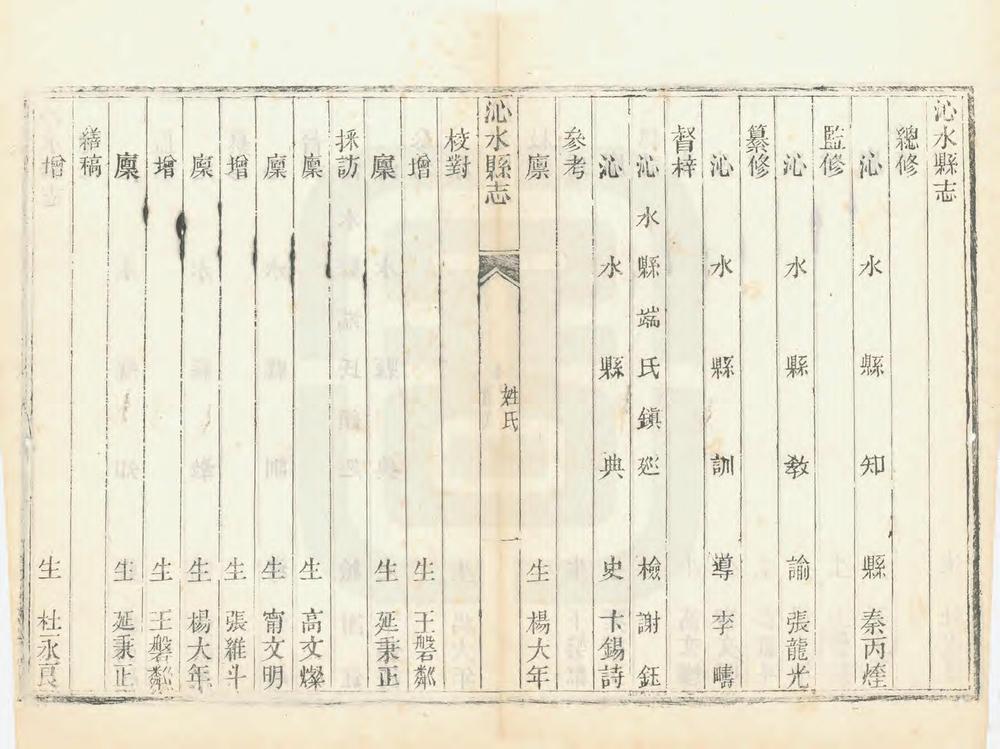 沁水縣志
總修
沁水縣知縣秦丙煃
監修
沁水縣敎諭張龍光
纂修
沁水縣訓導李疇
督梓
沁水縣端氏鎭廵檢謝鈺
沁水縣典史卞錫詩
參考
廩生楊大年
沁水縣志
姓氏
一
校對
增生王磐鄰
廩生延秉正
採訪
廩生高文燦
廩生甯文明
增生張維斗
廩生楊大年
增生王磐鄰
廩生延秉正
繕稿
增生杜永良